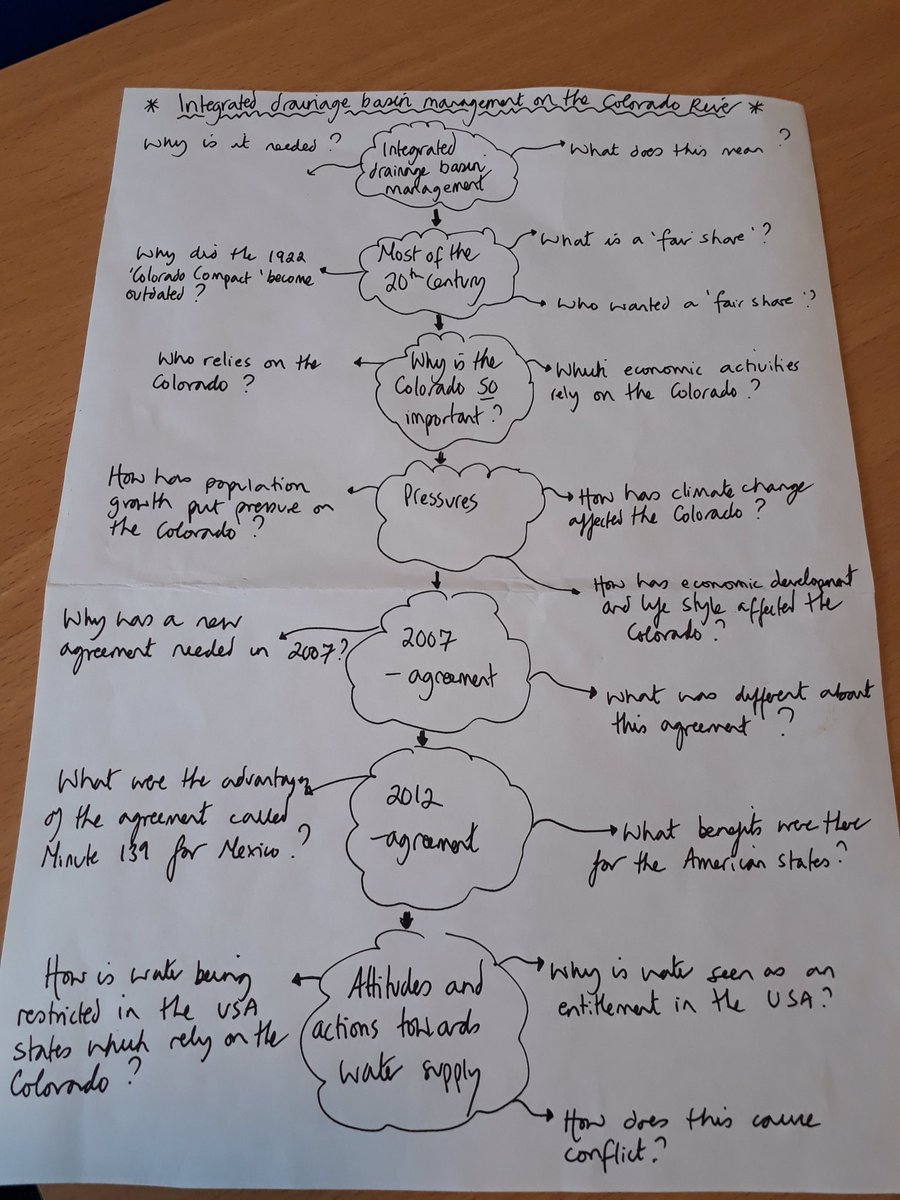 * Integrated drainage basin management on the Colorado River *
Why is it needed?
Integrated
drainage basin
management
What does this mean?
Why did the 1922
'Colorado Compact' become
outdated?
Most of the
20th Century
What is a 'fair share'?
Who wanted a 'fair share'?
Who relies on the
Colorado?
Why is the
Colorado so
important?
Which economic activities
rely on the Colorado?
How has population
growth put pressure on
the Colorado?
Pressures
How has climate change
affected the Colorado?
How has economic development
and life style affected the
Colorado?
Why was a new
agreement needed in 2007?
2007
- agreement
What was different about
this agreement?
What were the advantages
of the agreement called
Minute 139 for Mexico?
2012
- agreement
What benefits were there
for the American states?
How is water being
restricted in the USA
states which rely on the
Colorado?
Attitudes and
actions towards
water supply
Why is water seen as an
entitlement in the USA?
How does this cause
conflict?